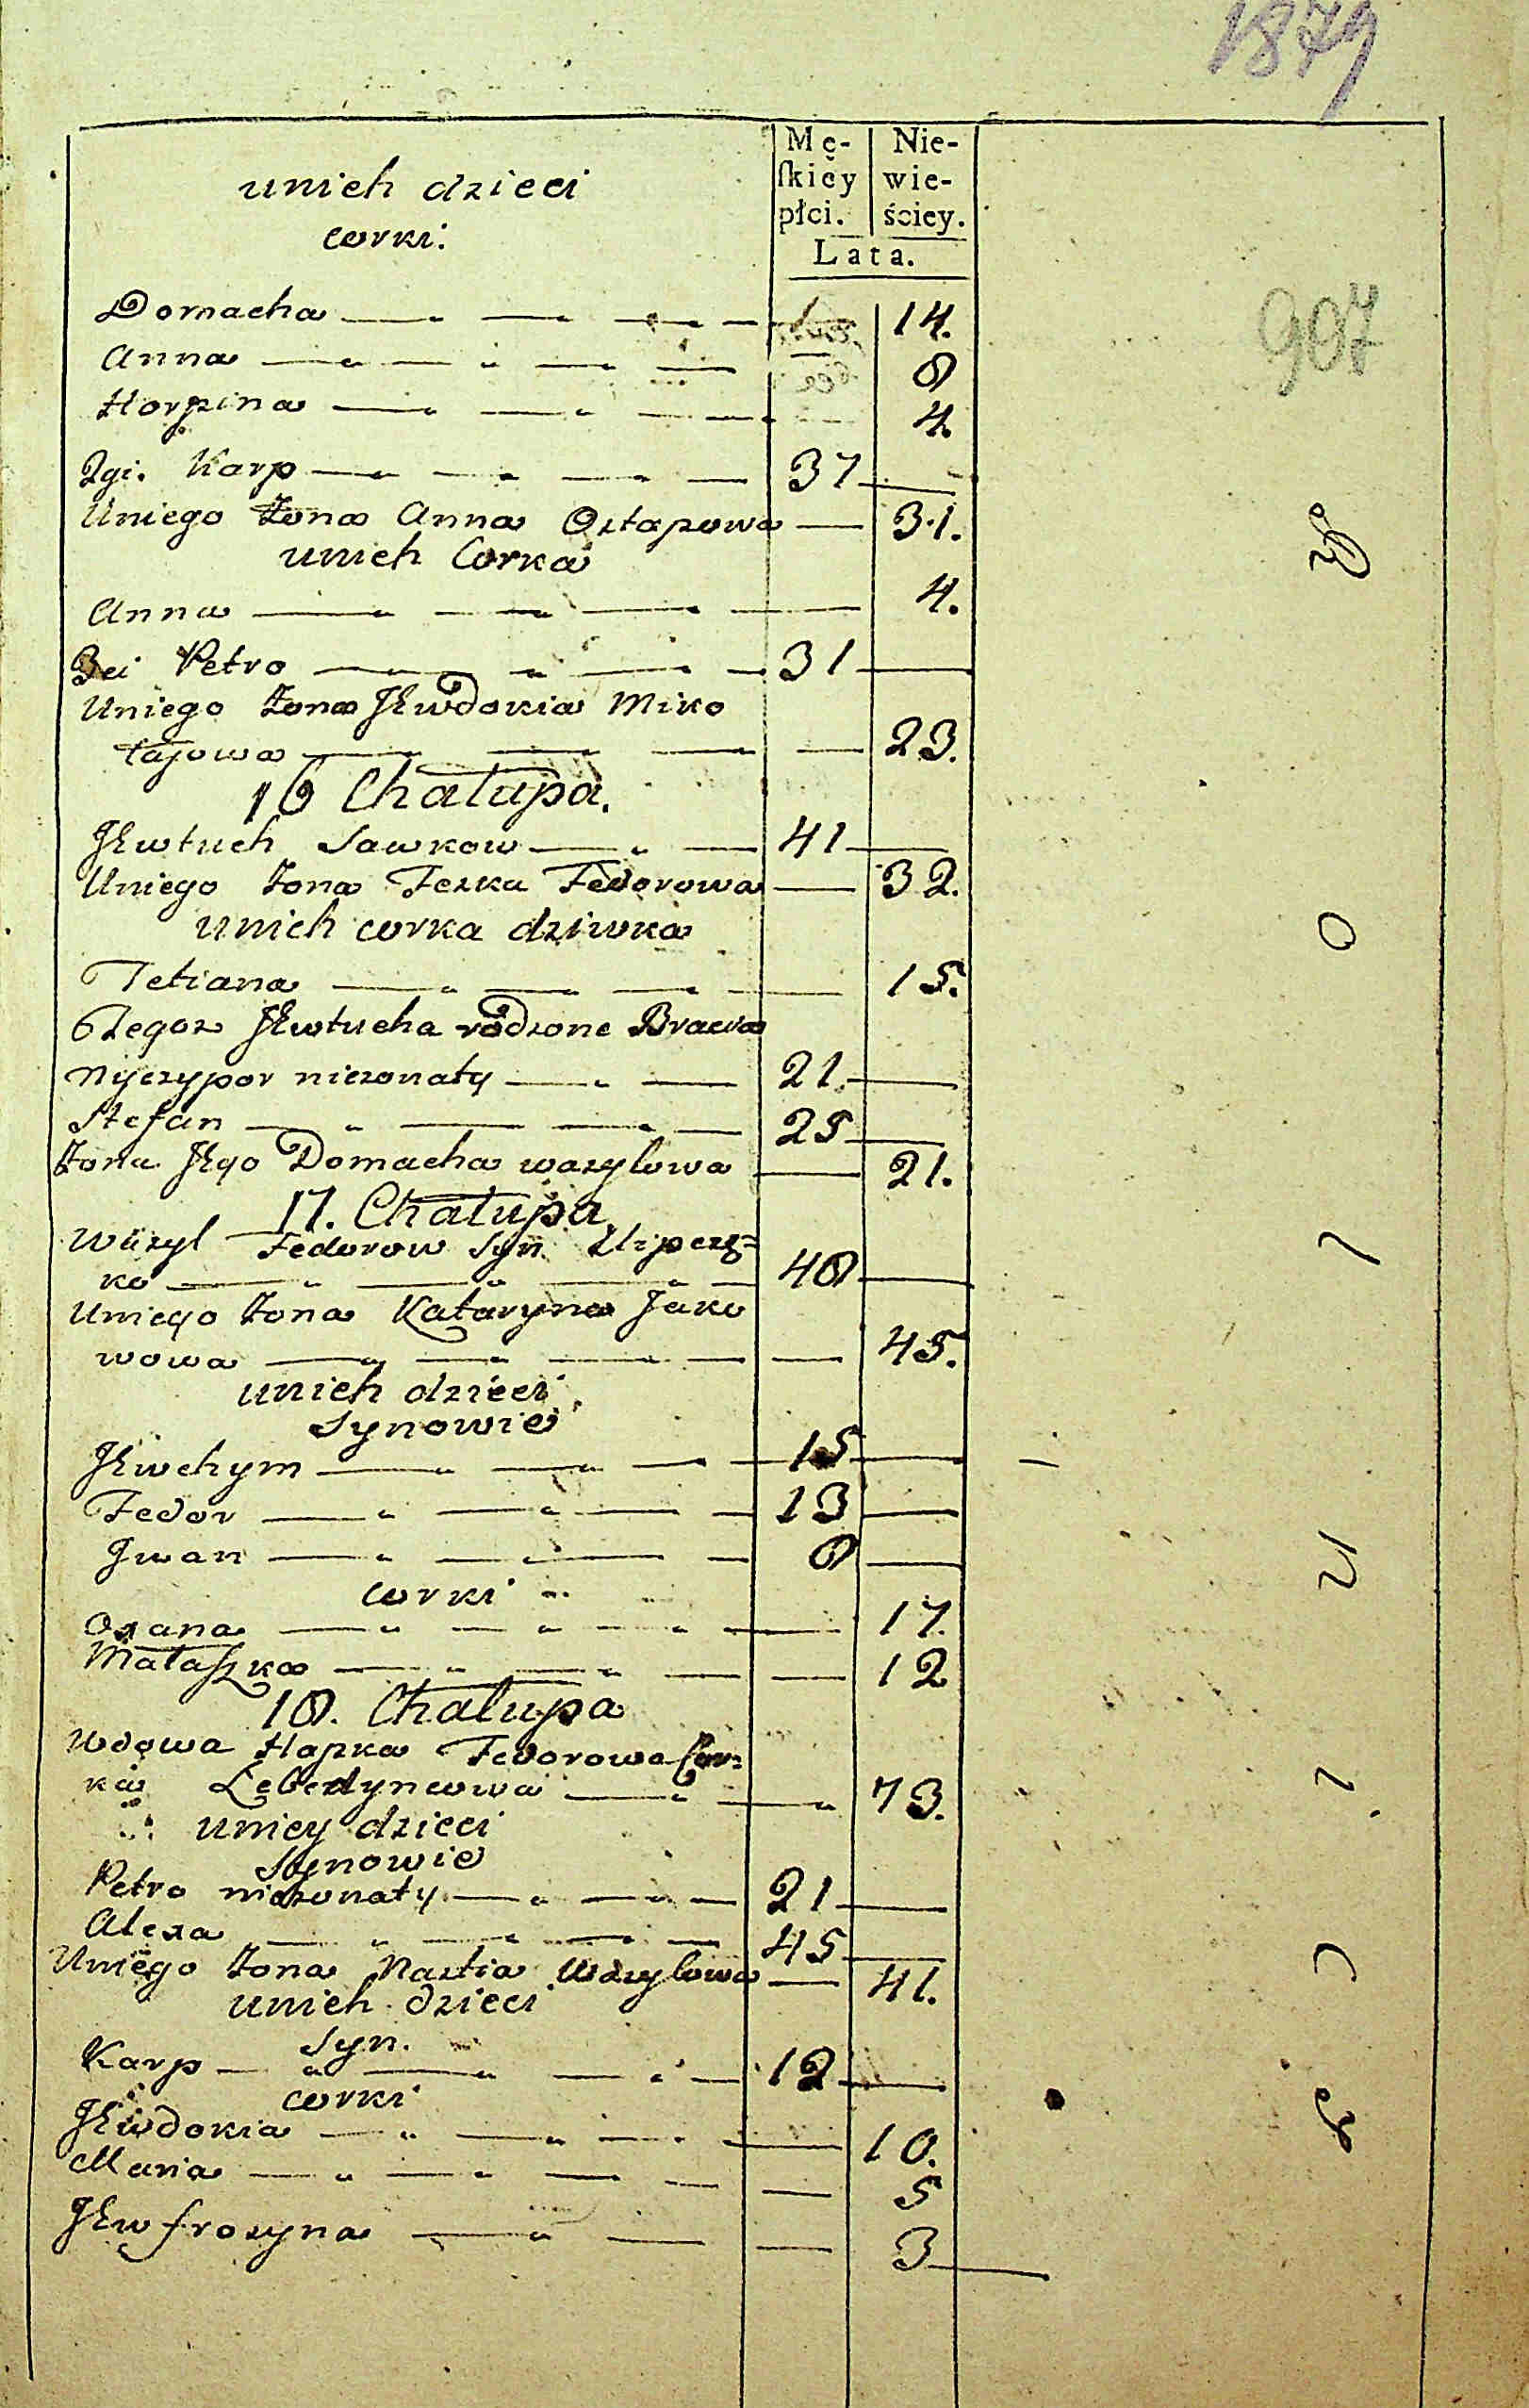 1879
Mę-
skiey
płci.
Nie-
wie-
ściey.
Lata.
unich dzieci
corki.
907
Domacha 14.
Anna 8
Horpina 4.
2gi. Karp 37
Uniego Zona Anna Ostapowa 31.
unich Corka
Anna 4.
3ci Petro 31
Uniego Zona Jewdokia Miko
łajowa 23.
16 Chałupa.
Jewtuch Sawkow 41
Uniego Zona Feska Fedorowa 32.
unich corka dziwka
Tetiana 15.
Tegoz Jewtucha rodzone Bracia
Nyczypor niezonaty 21.
Stefan 25
Zona Jego Domacha wasylowa 21.
17. Chałupa.
Wasyl Fedorow Syn
ko 48
Uniego Zona Kataryna Jako
wowa 45.
unich dzieci
Synowie
Jewchym 15
Fedor 13
Jwan 8
corki
Oxana 17.
Małaszka 12
18. Chałupa
Wdowa Hapka Fedorowa Cor=
ka 73.
uniey dzieci
Synowie
Petro niezonaty 21
Alexa 45
Uniego Zona Nastia Wasylowa 41.
unich dzieci
Syn.
Karp 12
corki
Jewdokia 10.
Maria 5
Jewfrozyna 3